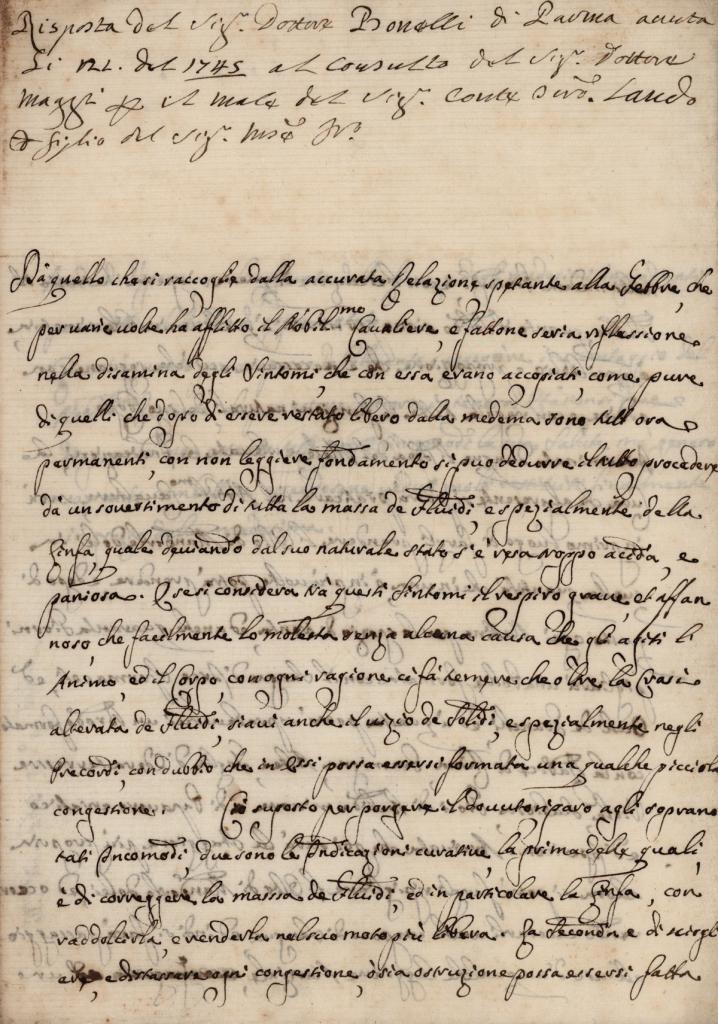 Risposta del Sig.r Dottore Bonelli di Parma avuta
Li del 1745 al Consulto del Sig.r Dottore
Maggi il male del Sig.r Conte Lando
figlio del Sig.r
Da quello che si raccoglie dalla accurata Relazione spetante alla Febbre, che
per varie volte ha afflitto il Nobil.mo Cavaliere, e fattone seria riflessione
nella disamina degli Sintomi, che con essa erano accopiati, come pure
di quelli che dopo di essere restato libero dalla medema sono tutt ora
permanenti, con non leggiere fondamento si puo dedurre il tutto procedere
da un sovertimento di tutta la massa de Fluidi, e spezialmente della
Linfa, quale deviando dal suo naturale stato s'è resa troppo acida, e
paniosa. E se si considera trà questi Sintomi il respiro grave, et affan
noso, che facilmente lo molesta senza alcuna causa che gli agiti l
Animo, ed il Corpo, con ogni ragione ci fà temere che oltre la Crasi
alterata de Fluidi, siavi anche il vizio de Solidi, e spezialmente negli
Precordi, con dubbio che in Essi possa essersi formata una qualche picciola
congestione. Ciò suposto per porgere il dovuto riparo agli soprano
tati Incomodi, due sono le Indicazioni curative, la prima delle quali,
è di correggere la massa de Fluidi, ed in particolare la Linfa, con
raddolcirla, e renderla nel suo moto più libera. La Seconda e di sciogli
ere, e distassare ogni congestione, ò sia ostruzione possa essersi fatta